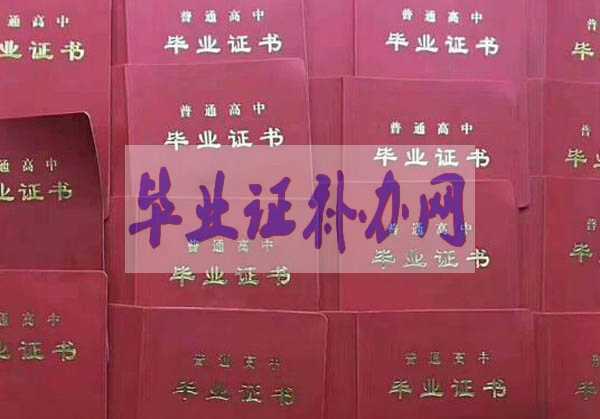 通高中
业证书
普通高中
毕业证书
普通高中
毕业证书
普
毕
普通高中
毕业证书
普通高中
毕业证书
普
毕
通高中
业证书
毕业证补办网
普通高中
毕业证书
普通高中
毕业证书
普
毕
通高中
业证书
普通高中
毕业证书
普通高中
毕业证书
普
毕